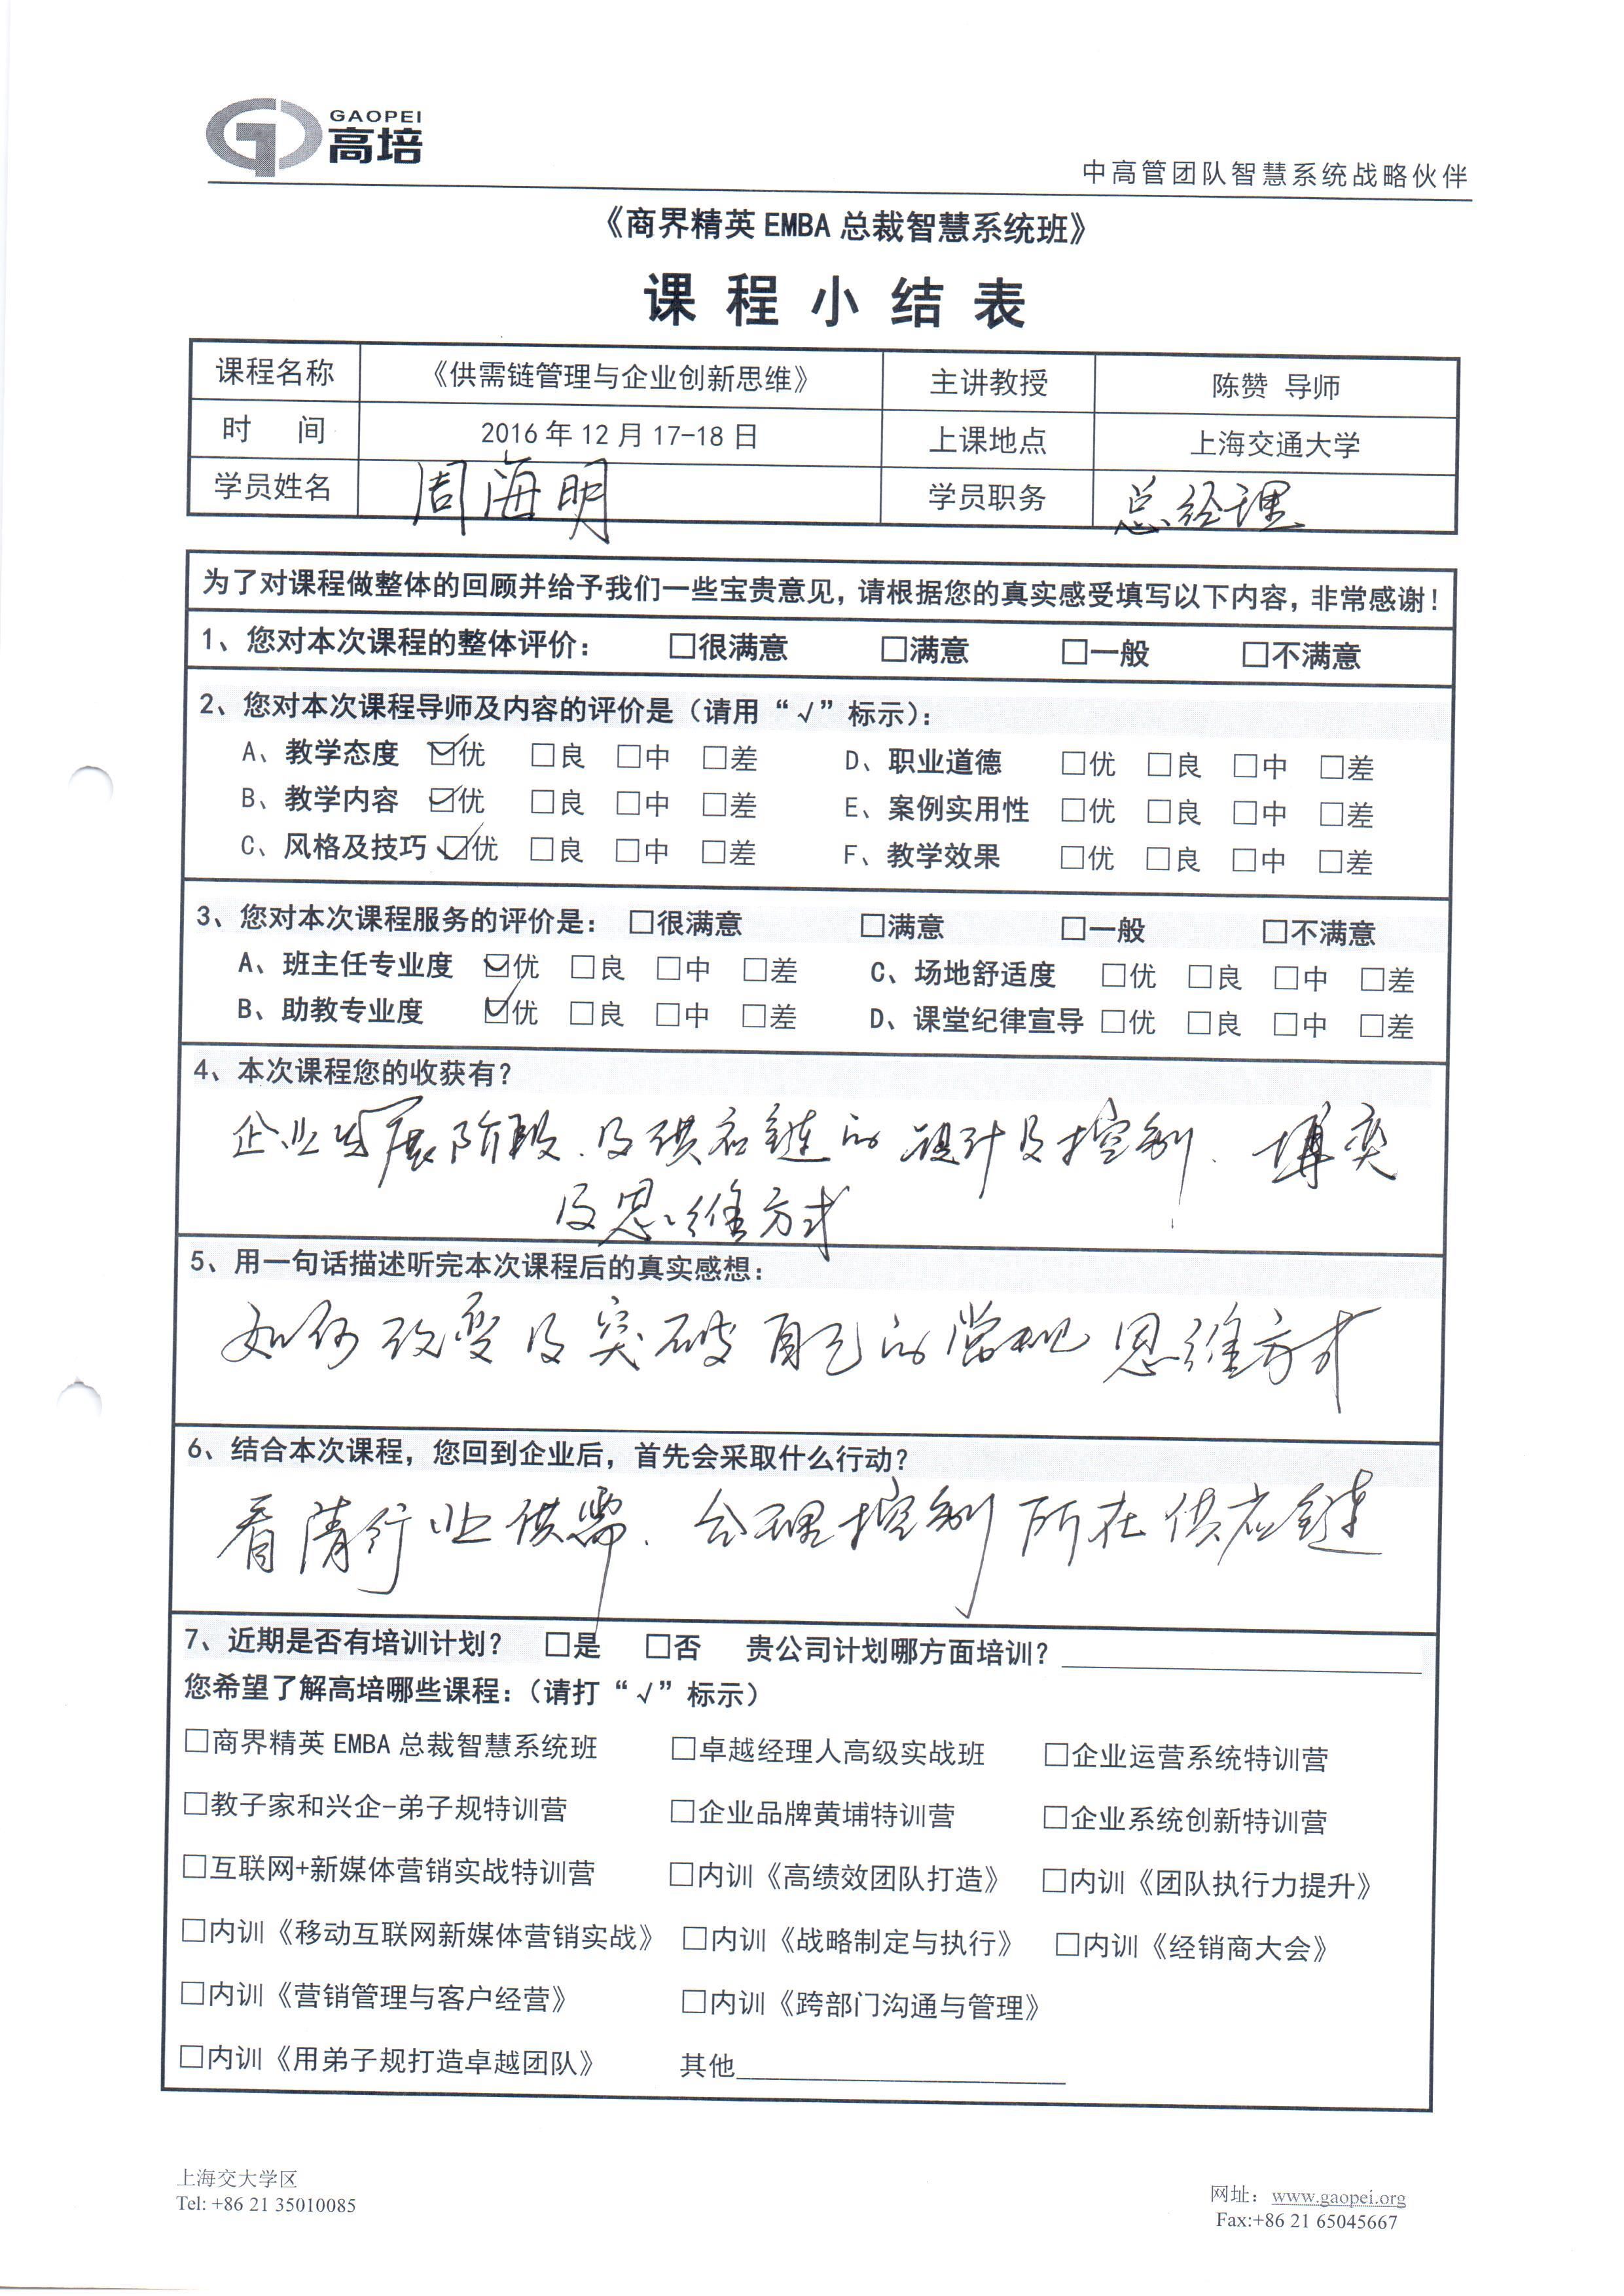 GAOPEI
高培
中高管团队智慧系统战略伙伴
《商界精英 EMBA 总裁智慧系统班》
课 程 小 结 表
课程名称 《供需链管理与企业创新思维》 主讲教授 陈赞 导师
时 间 2016 年 12 月 17-18 日 上课地点 上海交通大学
学员姓名 周海明 学员职务 总经理
为了对课程做整体的回顾并给予我们一些宝贵意见，请根据您的真实感受填写以下内容，非常感谢！
1、您对本次课程的整体评价： □很满意 □满意 □一般 □不满意
2、您对本次课程导师及内容的评价是（请用“√”标示）：
A、教学态度 ☑优 □良 □中 □差 D、职业道德 □优 □良 □中 □差
B、教学内容 ☑优 □良 □中 □差 E、案例实用性 □优 □良 □中 □差
C、风格及技巧 ☑优 □良 □中 □差 F、教学效果 □优 □良 □中 □差
3、您对本次课程服务的评价是： □很满意 □满意 □一般 □不满意
A、班主任专业度 ☑优 □良 □中 □差 C、场地舒适度 □优 □良 □中 □差
B、助教专业度 ☑优 □良 □中 □差 D、课堂纪律宣导 □优 □良 □中 □差
4、本次课程您的收获有？
企业发展阶段、及供应链的设计及控制、博奕
及思维方式
5、用一句话描述听完本次课程后的真实感想：
如何改变及突破自己的常规思维方式
6、结合本次课程，您回到企业后，首先会采取什么行动？
看清行业供需、合理控制所在供应链
7、近期是否有培训计划？ □是 □否 贵公司计划哪方面培训？
您希望了解高培哪些课程：（请打“√”标示）
□商界精英 EMBA 总裁智慧系统班 □卓越经理人高级实战班 □企业运营系统特训营
□教子家和兴企-弟子规特训营 □企业品牌黄埔特训营 □企业系统创新特训营
□互联网+新媒体营销实战特训营 □内训《高绩效团队打造》 □内训《团队执行力提升》
□内训《移动互联网新媒体营销实战》 □内训《战略制定与执行》 □内训《经销商大会》
□内训《营销管理与客户经营》 □内训《跨部门沟通与管理》
□内训《用弟子规打造卓越团队》 其他
上海交大学区
Tel: +86 21 35010085
网址：www.gaopei.org
Fax:+86 21 65045667